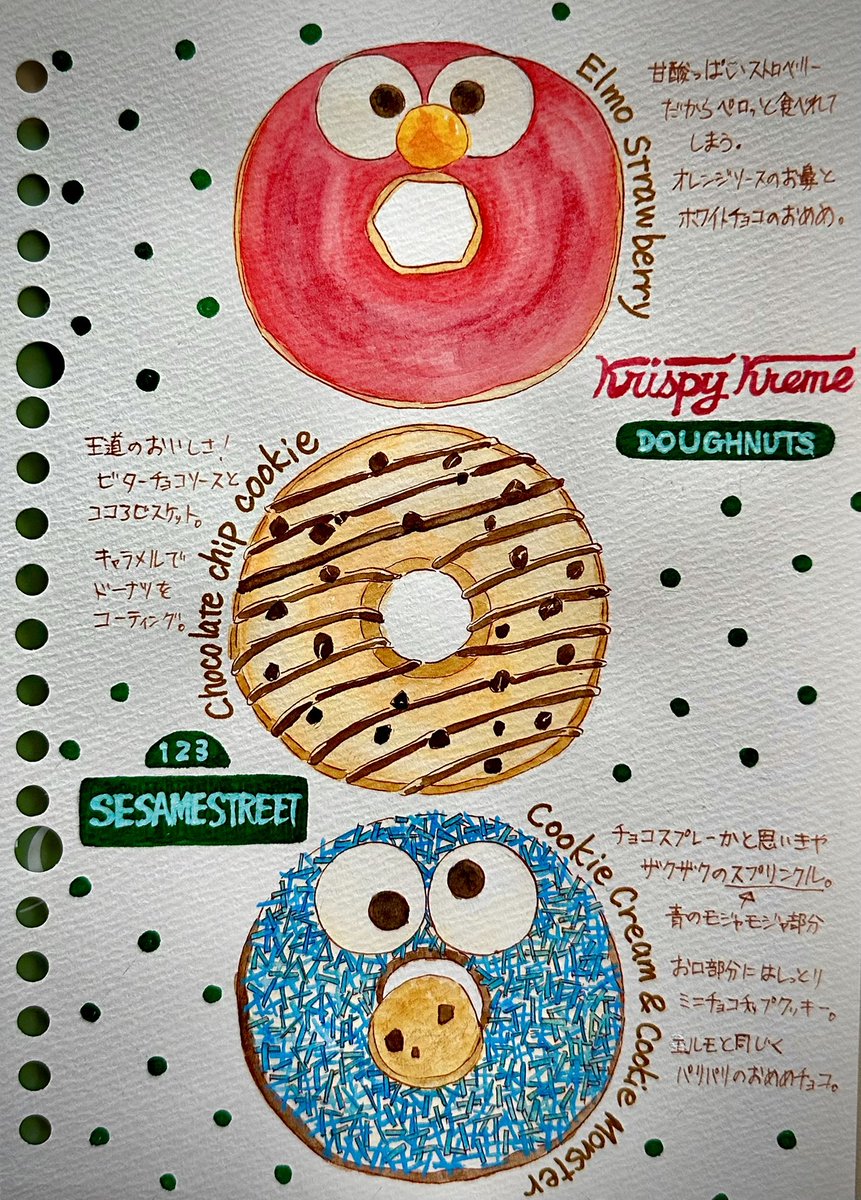 Elmo Strawberry
甘酸っぱいストロベリー
だからペロッと食べれて
しまう。
オレンジソースのお鼻と
ホワイトチョコのおめめ。
Krispy Kreme
DOUGHNUTS
王道のおいしさ!
ビターチョコソースと
ココアビスケット。
キャラメルで
ドーナツを
コーティング。
Chocolate chip cookie
123
SESAMESTREET
Cookie Cream & Cookie Monster
チョコスプレーかと思いきや
ザクザクのスプリンクル。
青のモジャモジャ部分
お口部分にはしっとり
ミニチョコチップクッキー。
エルモと同じく
パリパリのおめめチョコ。